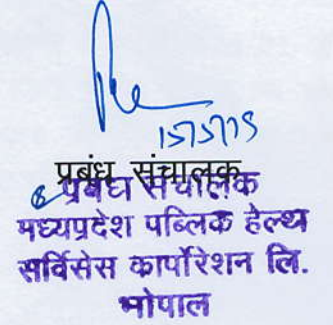 15/5/19
प्रबंध संचालक
प्रबंध संचालक
मध्यप्रदेश पब्लिक हेल्थ
सर्विसेस कार्पोरेशन लि.
भोपाल